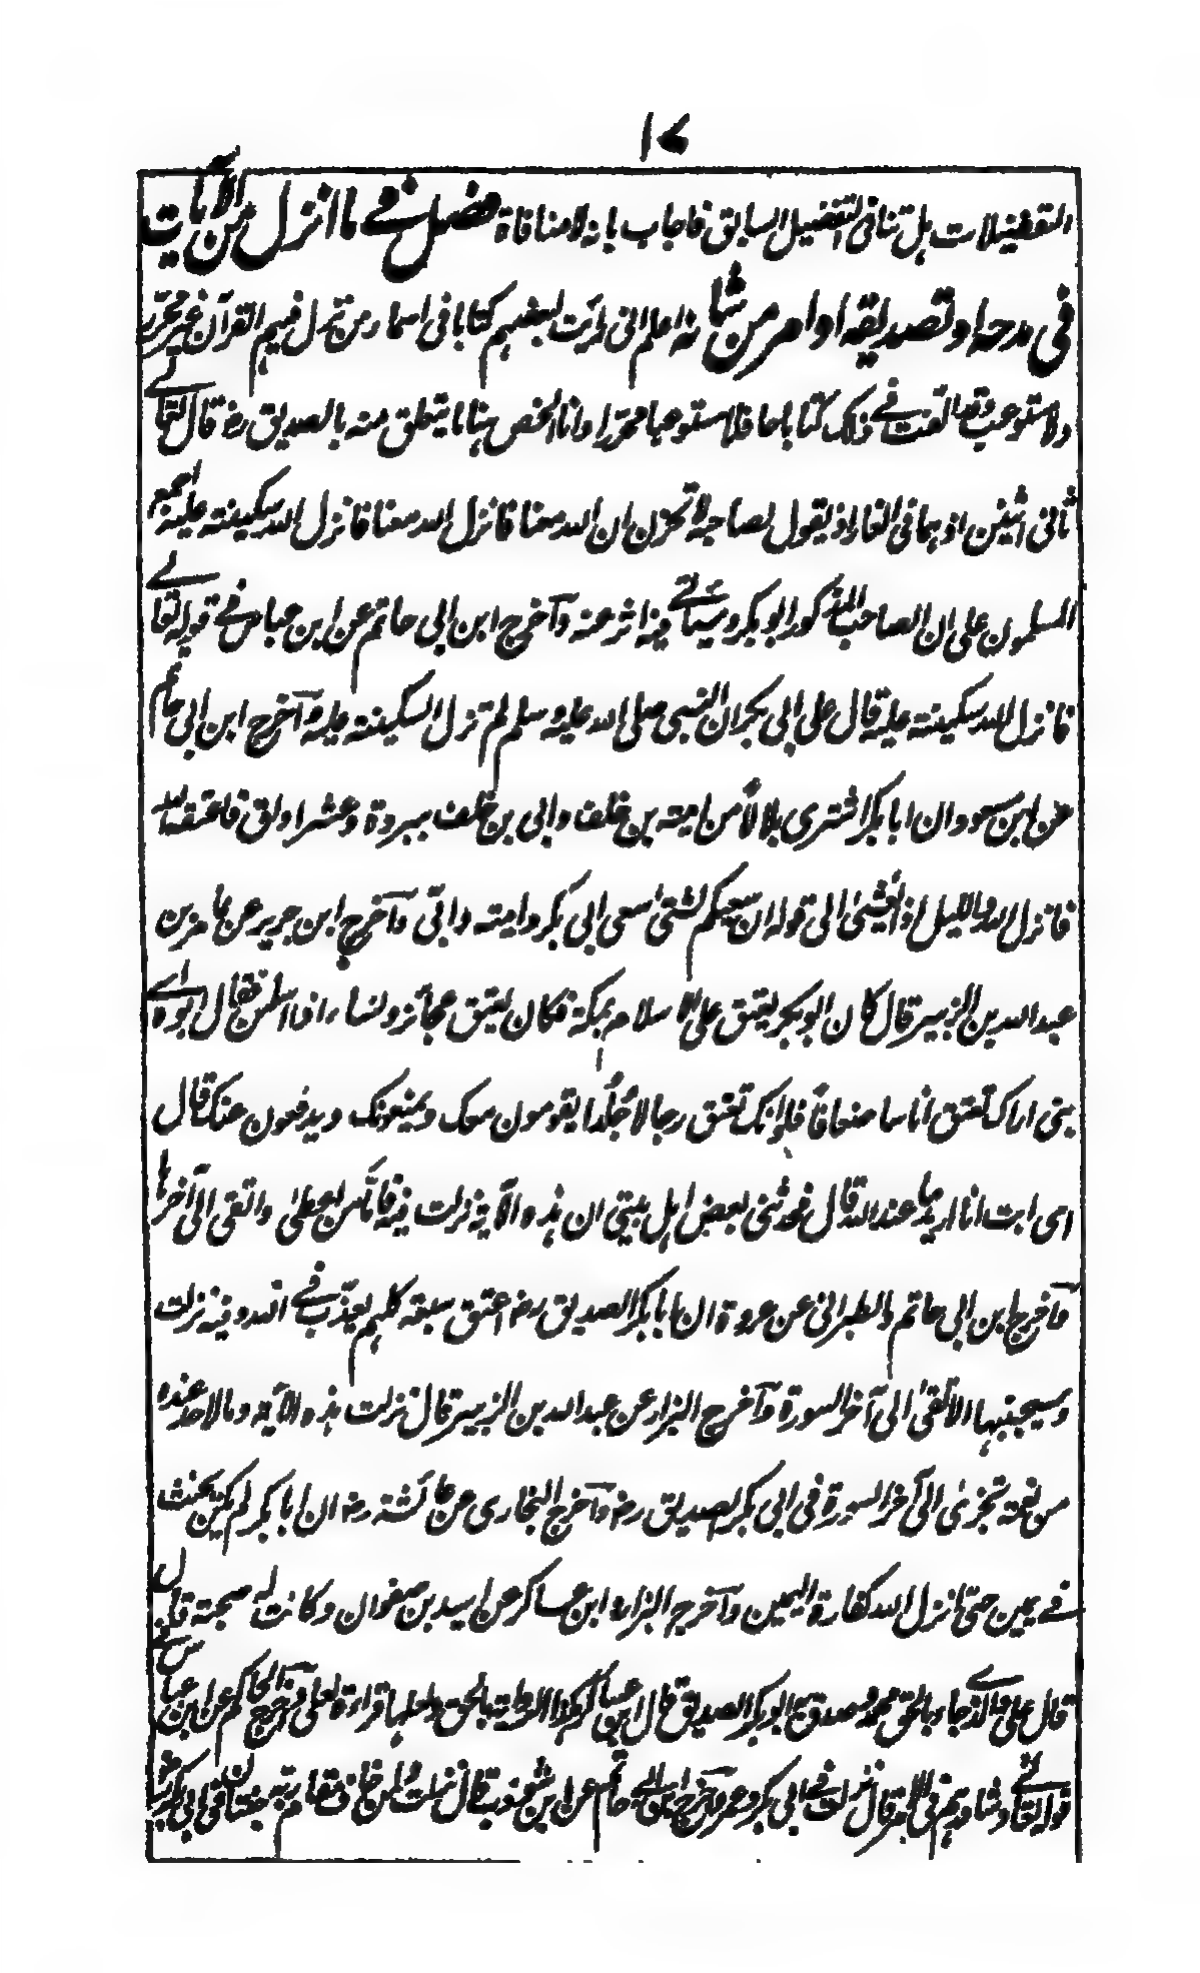 ۱۷
التفضيلات هل تنافى التفضيل السابق فاجاب بانه لا منافاة فصل فے ما انزل من الآيات
فى مدحه او تصديقه او امر من شانه اعلم انى رايت لبعضهم كتابا فى اسماء من نزل فيهم القرآن غير محرر
ولا مستوعب وقد الفت فے ذلك كتابا حافلا مستوعبا محررا وانا الخص هنا ما يتعلق منه بالصديق رضه قال تعالے
ثانى اثنين اذ هما فى الغار اذ يقول لصاحبه لا تحزن ان الله معنا فانزل الله معنا فانزل الله سكينته عليه اجمع
المسلمون على ان الصاحب المذكور ابو بكر وسياتے فيه اثر عنه وآخرج ابن ابى حاتم عن ابن عباس فے قوله تعالے
فانزل الله سكينته عليه قال على ابى بكر ان النبى صلى الله عليه وسلم لم تزل السكينته عليه وآخرج ابن ابى حاتم
عن ابن مسعود ان ابا بكر اشترى بلالا من اميته بن خلف وابى بن خلف ببردة وعشر اواق فاعتقه لله
فانزل الله والليل اذا يغشىٰ الى قوله ان سعيكم لشتىٰ سعى ابى بكر واميته وابى وآخرج ابن جرير عن عامر بن
عبد الله بن الزبير قال كان ابو بكر يعتق على الاسلام بمكة فكان يعتق عجائز ونساء اذا اسلمن فقال ابوه اے
بنى اراك تعتق اناسا ضعافا فلو انك تعتق رجالا جُلْدا يقومون معك ويمنعونك ويدفعون عنك قال
اى ابت انا اريد ما عند الله قال فحدثنى بعض اهل بيتى ان هذه الآية نزلت فيه فاما من اعطىٰ واتقى الى آخرها
وآخرج ابن ابى حاتم والطبرانى عن عروة ان ابا بكر الصديق رضه اعتق سبعة كلهم يعذب فے الله وفيه نزلت
وسيجنبها الاتقىٰ الى آخر السورة وآخرج البزار عن عبد الله بن الزبير قال نزلت هذه الآية وما لاحد عنده
من نعمة تجزىٰ الى آخر السورة فى ابى بكر الصديق رضه وآخرج البخارى عن عائشة رضه ان ابا بكر لم يكن يحنث
فے يمين حتى انزل الله كفارة اليمين وآخرج البزار وابن عساكر عن اسيد بن صفوان وكانت له صحبة قال
قال على والذے جاء بالحق محمد وصدق به ابو بكر الصديق قال ابن عساكر هكذا الرواية بالحق ولعلها قراءة لعلى وآخرج الحاكم عن ابن عباس فے
قوله تعالے وشاورهم فى الامر قال نزلت فے ابى بكر وعمر وآخرج ابن ابى حاتم عن ابن شوذب قال نزلت ولمن خاف مقام ربه جنتان فى ابى بكر